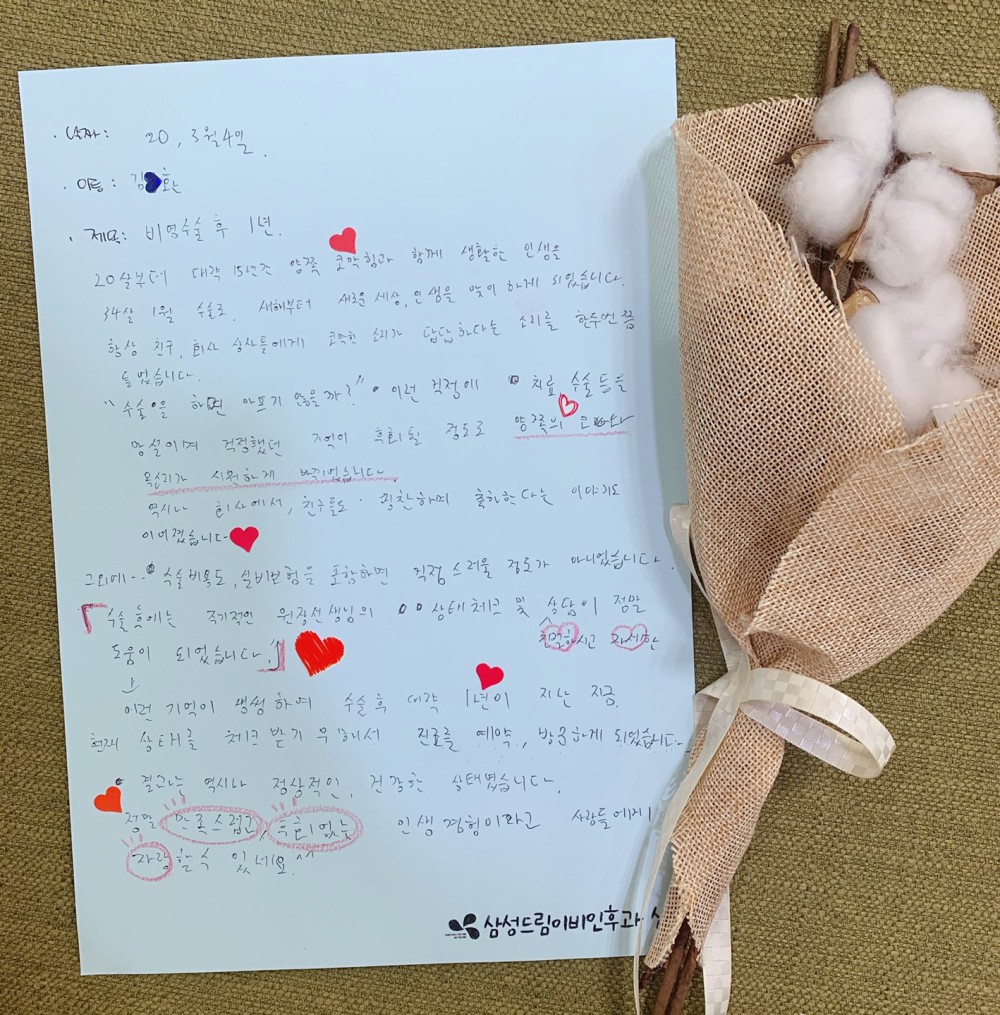 · 날짜: 20, 3월4일.
· 이름: 김 환
· 제목: 비염수술 후 1년.
20살부터 대략 15년간 양쪽 코막힘과 함께 생활한 인생을
34살 1월 수술로. 새해부터 새로운세상, 인생을 맞이 하게 되었습니다.
항상 친구, 회사 상사들에게 코막힌 소리가 답답하다는 소리를 한두번 쯤
들었습니다.
"수술을 하면 아프기 않을까?" 이런 걱정에 치료 수술 등을
망설이며 걱정했던 기억이 후회될 정도로 양쪽의 코와
목소리가 시원하게 바뀌었습니다
역시나 회사에서, 친구들도 칭찬하며 출하한다는 이야기도
이어졌습니다
그외에.. 수술비용도, 실비보험을 포함하면 걱정스러울 정도가 아니었습니다.
「수술 후에는 주기적인 원장선생님의 상태체크 및 상담이 정말
친절하시고 자세한
도움이 되었습니다.」
이런 기억이 생생하여 수술후 대략 1년이 지난 지금.
현재 상태를 체크 받기 위해서 진료를 예약, 방문하게 되었습니다.
결과는 역시나 정상적인, 건강한 상태였습니다.
정말 만족스럽고, 후회없는 인생경험이라고 사람들에게
자랑할 수 있네요 ^^
삼성드림이비인후과